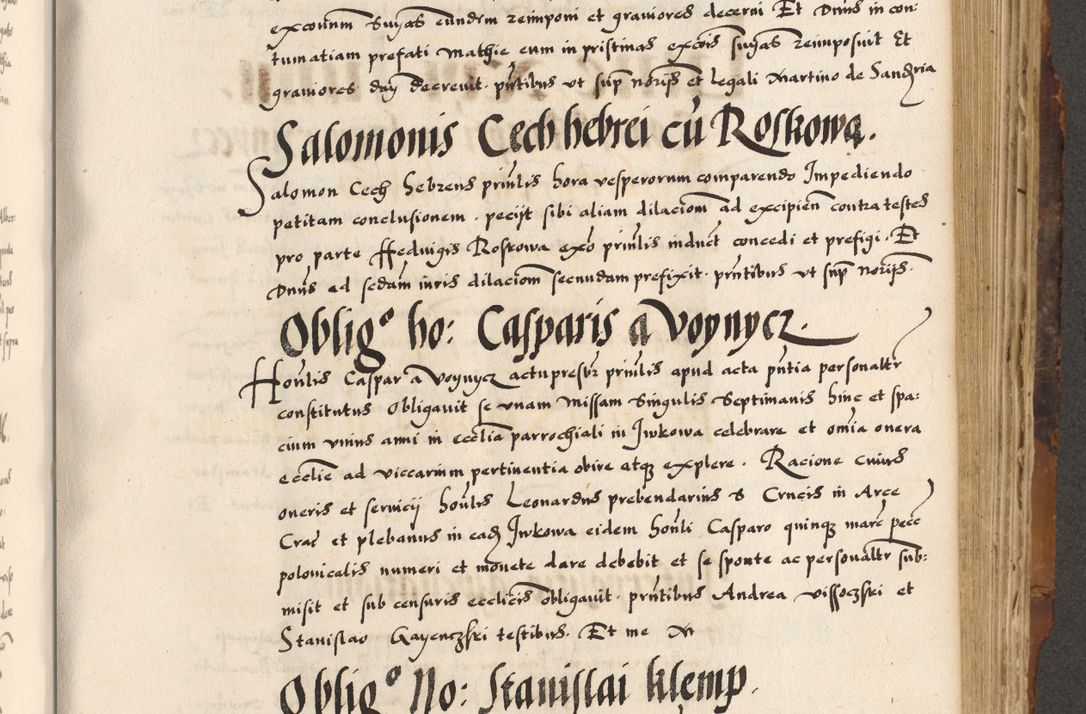 excoium Suprās eundem reimponi et graviores decerni Et Dnus in con:
tumatiam prefati Mathie eum in pristinas excōis suprās reimposuit Et
graviores decrevit. pntibus ut sup noriis et legali Martino de Sandria
Salomonis Cech hebrei cū Roskowa.
Salomon Cech Hebreus prinlis hora vesperorum comparendo Impediendo
petitam conclusionem. pecijt sibi aliam dilaciom ad excipien contra testes
pro parte Hedvigis Roskowa exō prinlis induct concedi et prefigi. Et
Dnus ad sedam iuris dilaciom secundam prefixit. pntibus ut sup noriis.
Oblig.º ho: Casparis a Voynycz.
Honlis Caspar a Voynycz actu presbr prinlis apud acta pntia personaltr
constitutus Obligavit se unam Missam Singulis Septimanis hinc et spa:
cium unius anni in ecclia parrochiali in Iwkowa celebrare et omia onera
ecclie ad viccarium pertinentia obire atqz explere. Racione cuius
oneris et servicij honlis Leonardus prebendarius S Crucis in Arce
Crac et plebanus in ead Iwkowa eidem honli Casparo quinqz marc pecc
polonicalis numeri et monete dare debebit et se sponte ac personaltr sub:
misit et sub censuris ecclicis obligavit. pntibus Andrea Vissoczski et
Stanislao Gayenczski testibus. Et me N
Oblig.º No: Stanislai klemp.